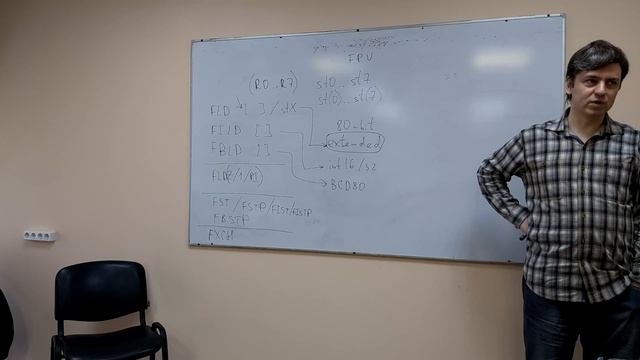 FPU
(R0...R7)
st0...st7
st(0)...st(7)
FLD [ ]/stX
80-bit
extended
FILD [ ]
int16/32
FBLD [ ]
BCD80
FST/FSTP/FIST/FISTP
FBSTP
FXCH